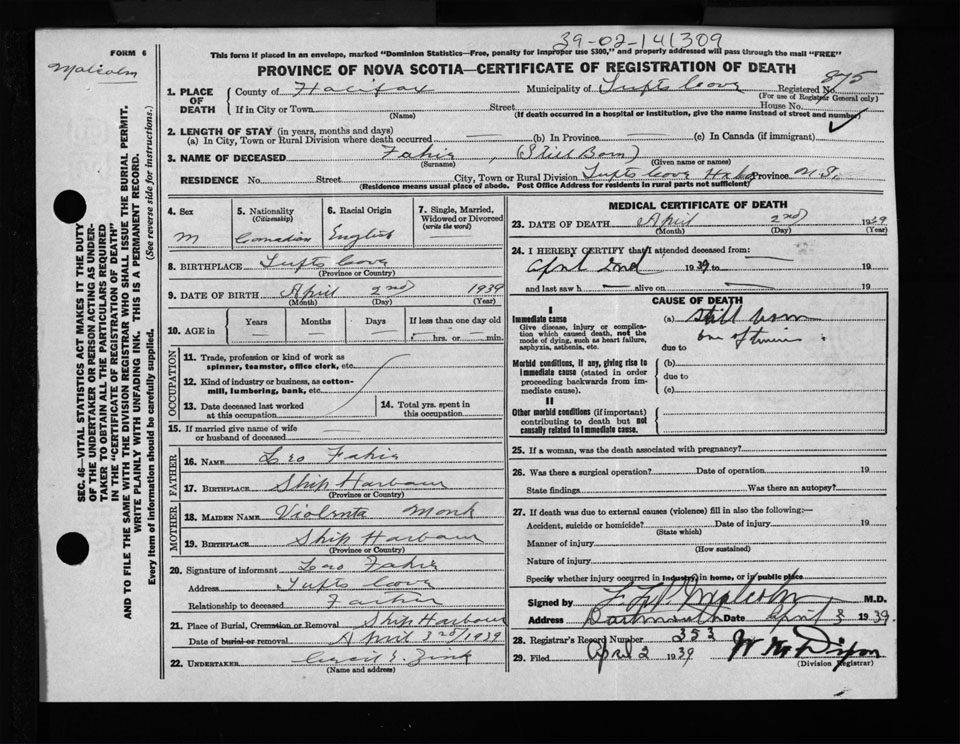 39-02-141309
FORM 6
This form if placed in an envelope, marked "Dominion Statistics—Free, penalty for improper use $300," and properly addressed will pass through the mail "FREE"
Malcolm
PROVINCE OF NOVA SCOTIA—CERTIFICATE OF REGISTRATION OF DEATH
875
1. PLACE OF DEATH
County of Halifax Municipality of Tufts Cove Registered No.
(For use of Registrar General only)
If in City or Town Street House No.
(Name) (If death occurred in a hospital or institution, give the name instead of street and number)
2. LENGTH OF STAY (in years, months and days)
(a) In City, Town or Rural Division where death occurred — (b) In Province — (c) In Canada (if immigrant)
3. NAME OF DECEASED Fahie, (Still Born)
(Surname) (Given name or names)
RESIDENCE No. Street City, Town or Rural Division Tufts Cove Province N.S.
(Residence means usual place of abode. Post Office Address for residents in rural parts not sufficient)
SEC. 46—VITAL STATISTICS ACT MAKES IT THE DUTY
OF THE UNDERTAKER OR PERSON ACTING AS UNDER-
TAKER TO OBTAIN ALL THE PARTICULARS REQUIRED
IN THE "CERTIFICATE OF REGISTRATION OF DEATH"
AND TO FILE THE SAME WITH THE DIVISION REGISTRAR WHO SHALL ISSUE THE BURIAL PERMIT.
WRITE PLAINLY WITH UNFADING INK. THIS IS A PERMANENT RECORD.
Every item of information should be carefully supplied. (See reverse side for instructions.)
4. Sex 5. Nationality (Citizenship) 6. Racial Origin 7. Single, Married, Widowed or Divorced (write the word)
M Canadian English —
8. BIRTHPLACE Tufts Cove
(Province or Country)
9. DATE OF BIRTH April 2nd 1939
(Month) (Day) (Year)
10. AGE in Years Months Days If less than one day old
hrs. or min.
OCCUPATION
11. Trade, profession or kind of work as spinner, teamster, office clerk, etc.
12. Kind of industry or business, as cotton-mill, lumbering, bank, etc.
13. Date deceased last worked at this occupation
14. Total yrs. spent in this occupation
15. If married give name of wife or husband of deceased —
FATHER
16. NAME Leo Fahie
17. BIRTHPLACE Ship Harbour
(Province or Country)
MOTHER
18. MAIDEN NAME Violenta Monk
19. BIRTHPLACE Ship Harbour
(Province or Country)
20. Signature of informant Leo Fahie
Address Tufts Cove
Relationship to deceased Father
21. Place of Burial, Cremation or Removal Ship Harbour
Date of burial or removal April 3rd/1939
22. UNDERTAKER Cecil E. Zink
(Name and address)
MEDICAL CERTIFICATE OF DEATH
23. DATE OF DEATH April 2nd 1939
(Month) (Day) (Year)
24. I HEREBY CERTIFY that I attended deceased from:
April 2nd 1939 to — 19
and last saw h — alive on — 19
CAUSE OF DEATH
I
Immediate cause (a) Still born
Give disease, injury or complication which caused death, not the mode of dying, such as heart failure, asphyxia, asthenia, etc.
one of twins
due to
Morbid conditions, if any, giving rise to immediate cause (stated in order proceeding backwards from immediate cause).
(b)
due to
(c)
II
Other morbid conditions (if important) contributing to death but not causally related to immediate cause.
25. If a woman, was the death associated with pregnancy?
26. Was there a surgical operation? Date of operation 19
State findings Was there an autopsy?
27. If death was due to external causes (violence) fill in also the following:—
Accident, suicide or homicide? Date of injury 19
(State which)
Manner of injury
(How sustained)
Nature of injury
Specify whether injury occurred in industry, in home, or in public place
Signed by Malcolm M.D.
Address Dartmouth Date April 3 1939.
28. Registrar's Record Number 353
29. Filed April 2 1939 Dixon
(Division Registrar)